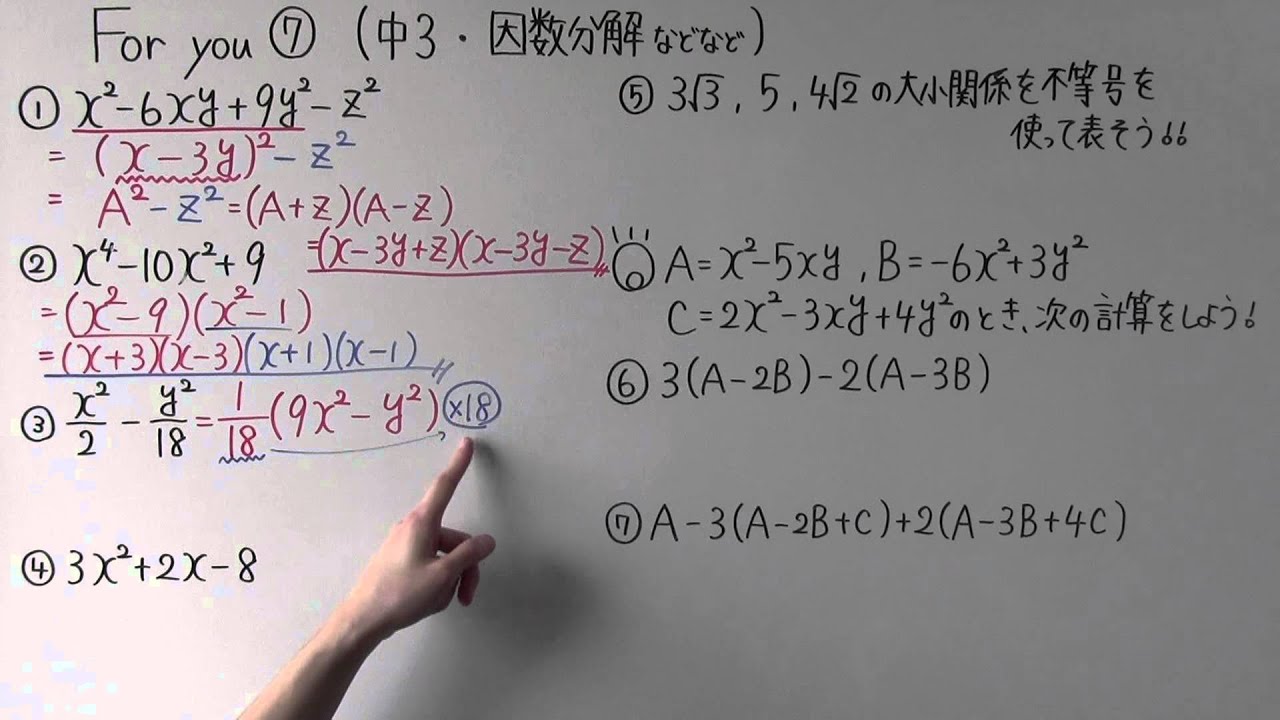 For you ⑦ (中3・因数分解などなど)
① x²-6xy+9y²-z²
= (x-3y)²-z²
= A²-z²=(A+z)(A-z)
=(x-3y+z)(x-3y-z)
② x⁴-10x²+9
=(x²-9)(x²-1)
=(x+3)(x-3)(x+1)(x-1)
③ x²/2 - y²/18 = 1/18 (9x²-y²) ×18
④ 3x²+2x-8
⑤ 3√3, 5, 4√2の大小関係を不等号を
使って表そう!!
A=x²-5xy, B=-6x²+3y²
C=2x²-3xy+4y²のとき、次の計算をしよう!
⑥ 3(A-2B)-2(A-3B)
⑦ A-3(A-2B+C)+2(A-3B+4C)